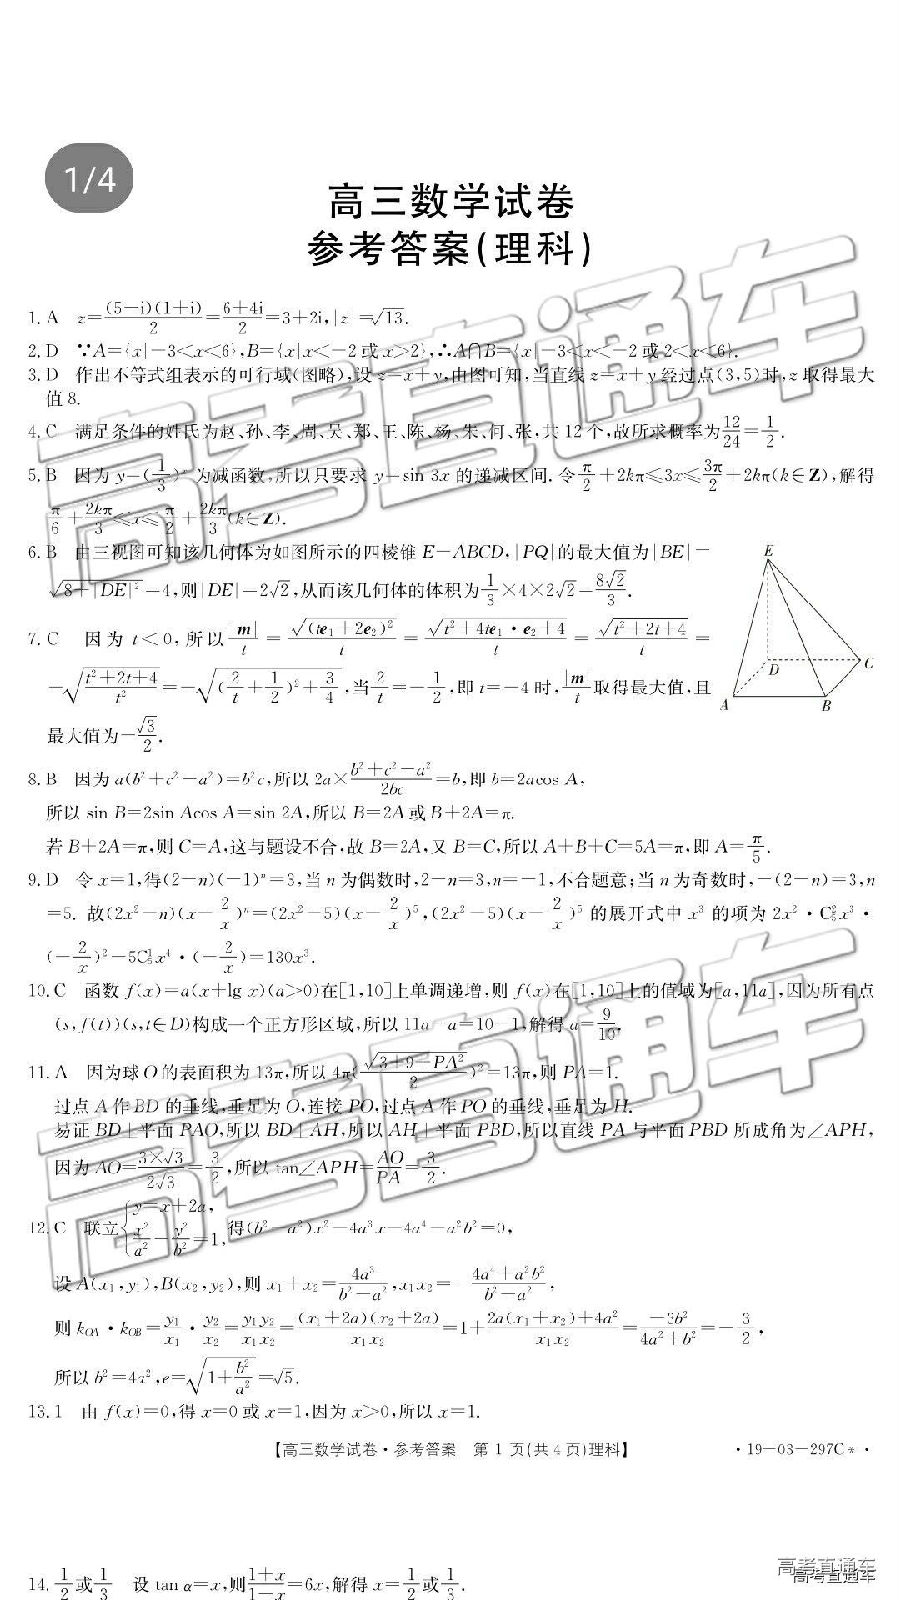 1/4
高三数学试卷
参考答案(理科)
1. A z=(5-i)(1+i)/2=6+4i/2=3+2i,|z|=√13.
2. D ∵A={x|-3<x<6},B={x|x<-2或x>2},∴A∩B={x|-3<x<-2或2<x<6}.
3. D 作出不等式组表示的可行域(图略),设z=x+y,由图可知,当直线z=x+y经过点(3,5)时,z取得最大
值8.
4. C 满足条件的姓氏为赵、孙、李、周、吴、郑、王、陈、杨、朱、何、张,共12个,故所求概率为12/24=1/2.
5. B 因为y=(1/3)^x为减函数,所以只要求y=sin 3x的递减区间.令π/2+2kπ≤3x≤3π/2+2kπ(k∈Z),解得
π/6+2kπ/3≤x≤π/2+2kπ/3(k∈Z).
6. B 由三视图可知该几何体为如图所示的四棱锥E-ABCD,|PQ|的最大值为|BE|=
√(8+|DE|²)=4,则|DE|=2√2,从而该几何体的体积为1/3×4×2√2=8√2/3.
E
D
C
A
B
7. C 因为t<0,所以|m|/t=√((te₁+2e₂)²)/t=√(t²+4te₁·e₂+4)/t=√(t²+2t+4)/t=
-√((t²+2t+4)/t²)=-√((2/t+1/2)²+3/4),当2/t=-1/2,即t=-4时,|m|/t取得最大值,且
最大值为-√3/2.
8. B 因为a(b²+c²-a²)=b²c,所以2a×(b²+c²-a²)/2bc=b,即b=2acos A,
所以sin B=2sin Acos A=sin 2A,所以B=2A或B+2A=π.
若B+2A=π,则C=A,这与题设不合,故B=2A,又B=C,所以A+B+C=5A=π,即A=π/5.
9. D 令x=1,得(2-n)(-1)ⁿ=3,当n为偶数时,2-n=3,n=-1,不合题意;当n为奇数时,-(2-n)=3,n
=5. 故(2x²-n)(x-2/x)ⁿ=(2x²-5)(x-2/x)⁵,(2x²-5)(x-2/x)⁵的展开式中x³的项为2x²·C₅²x³·
(-2/x)²-5C₅¹x⁴·(-2/x)=130x³.
10. C 函数f(x)=a(x+lg x)(a>0)在[1,10]上单调递增,则f(x)在[1,10]上的值域为[a,11a],因为所有点
(s,f(t))(s,t∈D)构成一个正方形区域,所以11a-a=10-1,解得a=9/10.
11. A 因为球O的表面积为13π,所以4π(√(3+9+PA²)/2)²=13π,则PA=1.
过点A作BD的垂线,垂足为O,连接PO,过点A作PO的垂线,垂足为H.
易证BD⊥平面PAO,所以BD⊥AH,所以AH⊥平面PBD,所以直线PA与平面PBD所成角为∠APH,
因为AO=3×√3/2√3=3/2,所以tan∠APH=AO/PA=3/2.
12. C 联立{y=x+2a, x²/a²-y²/b²=1,得(b²-a²)x²-4a³x-4a⁴-a²b²=0,
设A(x₁,y₁),B(x₂,y₂),则x₁+x₂=4a³/(b²-a²),x₁x₂=-(4a⁴+a²b²)/(b²-a²),
则k_OA·k_OB=y₁/x₁·y₂/x₂=y₁y₂/x₁x₂=(x₁+2a)(x₂+2a)/x₁x₂=1+(2a(x₁+x₂)+4a²)/x₁x₂=-3b²/(4a²+b²)=-3/2,
所以b²=4a²,e=√(1+b²/a²)=√5.
13. 1 由f(x)=0,得x=0或x=1,因为x>0,所以x=1.
【高三数学试卷·参考答案 第1页(共4页)理科】
·19-03-297C*·
14. 1/2或1/3 设tan α=x,则(1+x)/(1-x)=6x,解得x=1/2或1/3.
高考直通车
高考直通车
高考直通车
高考直通车